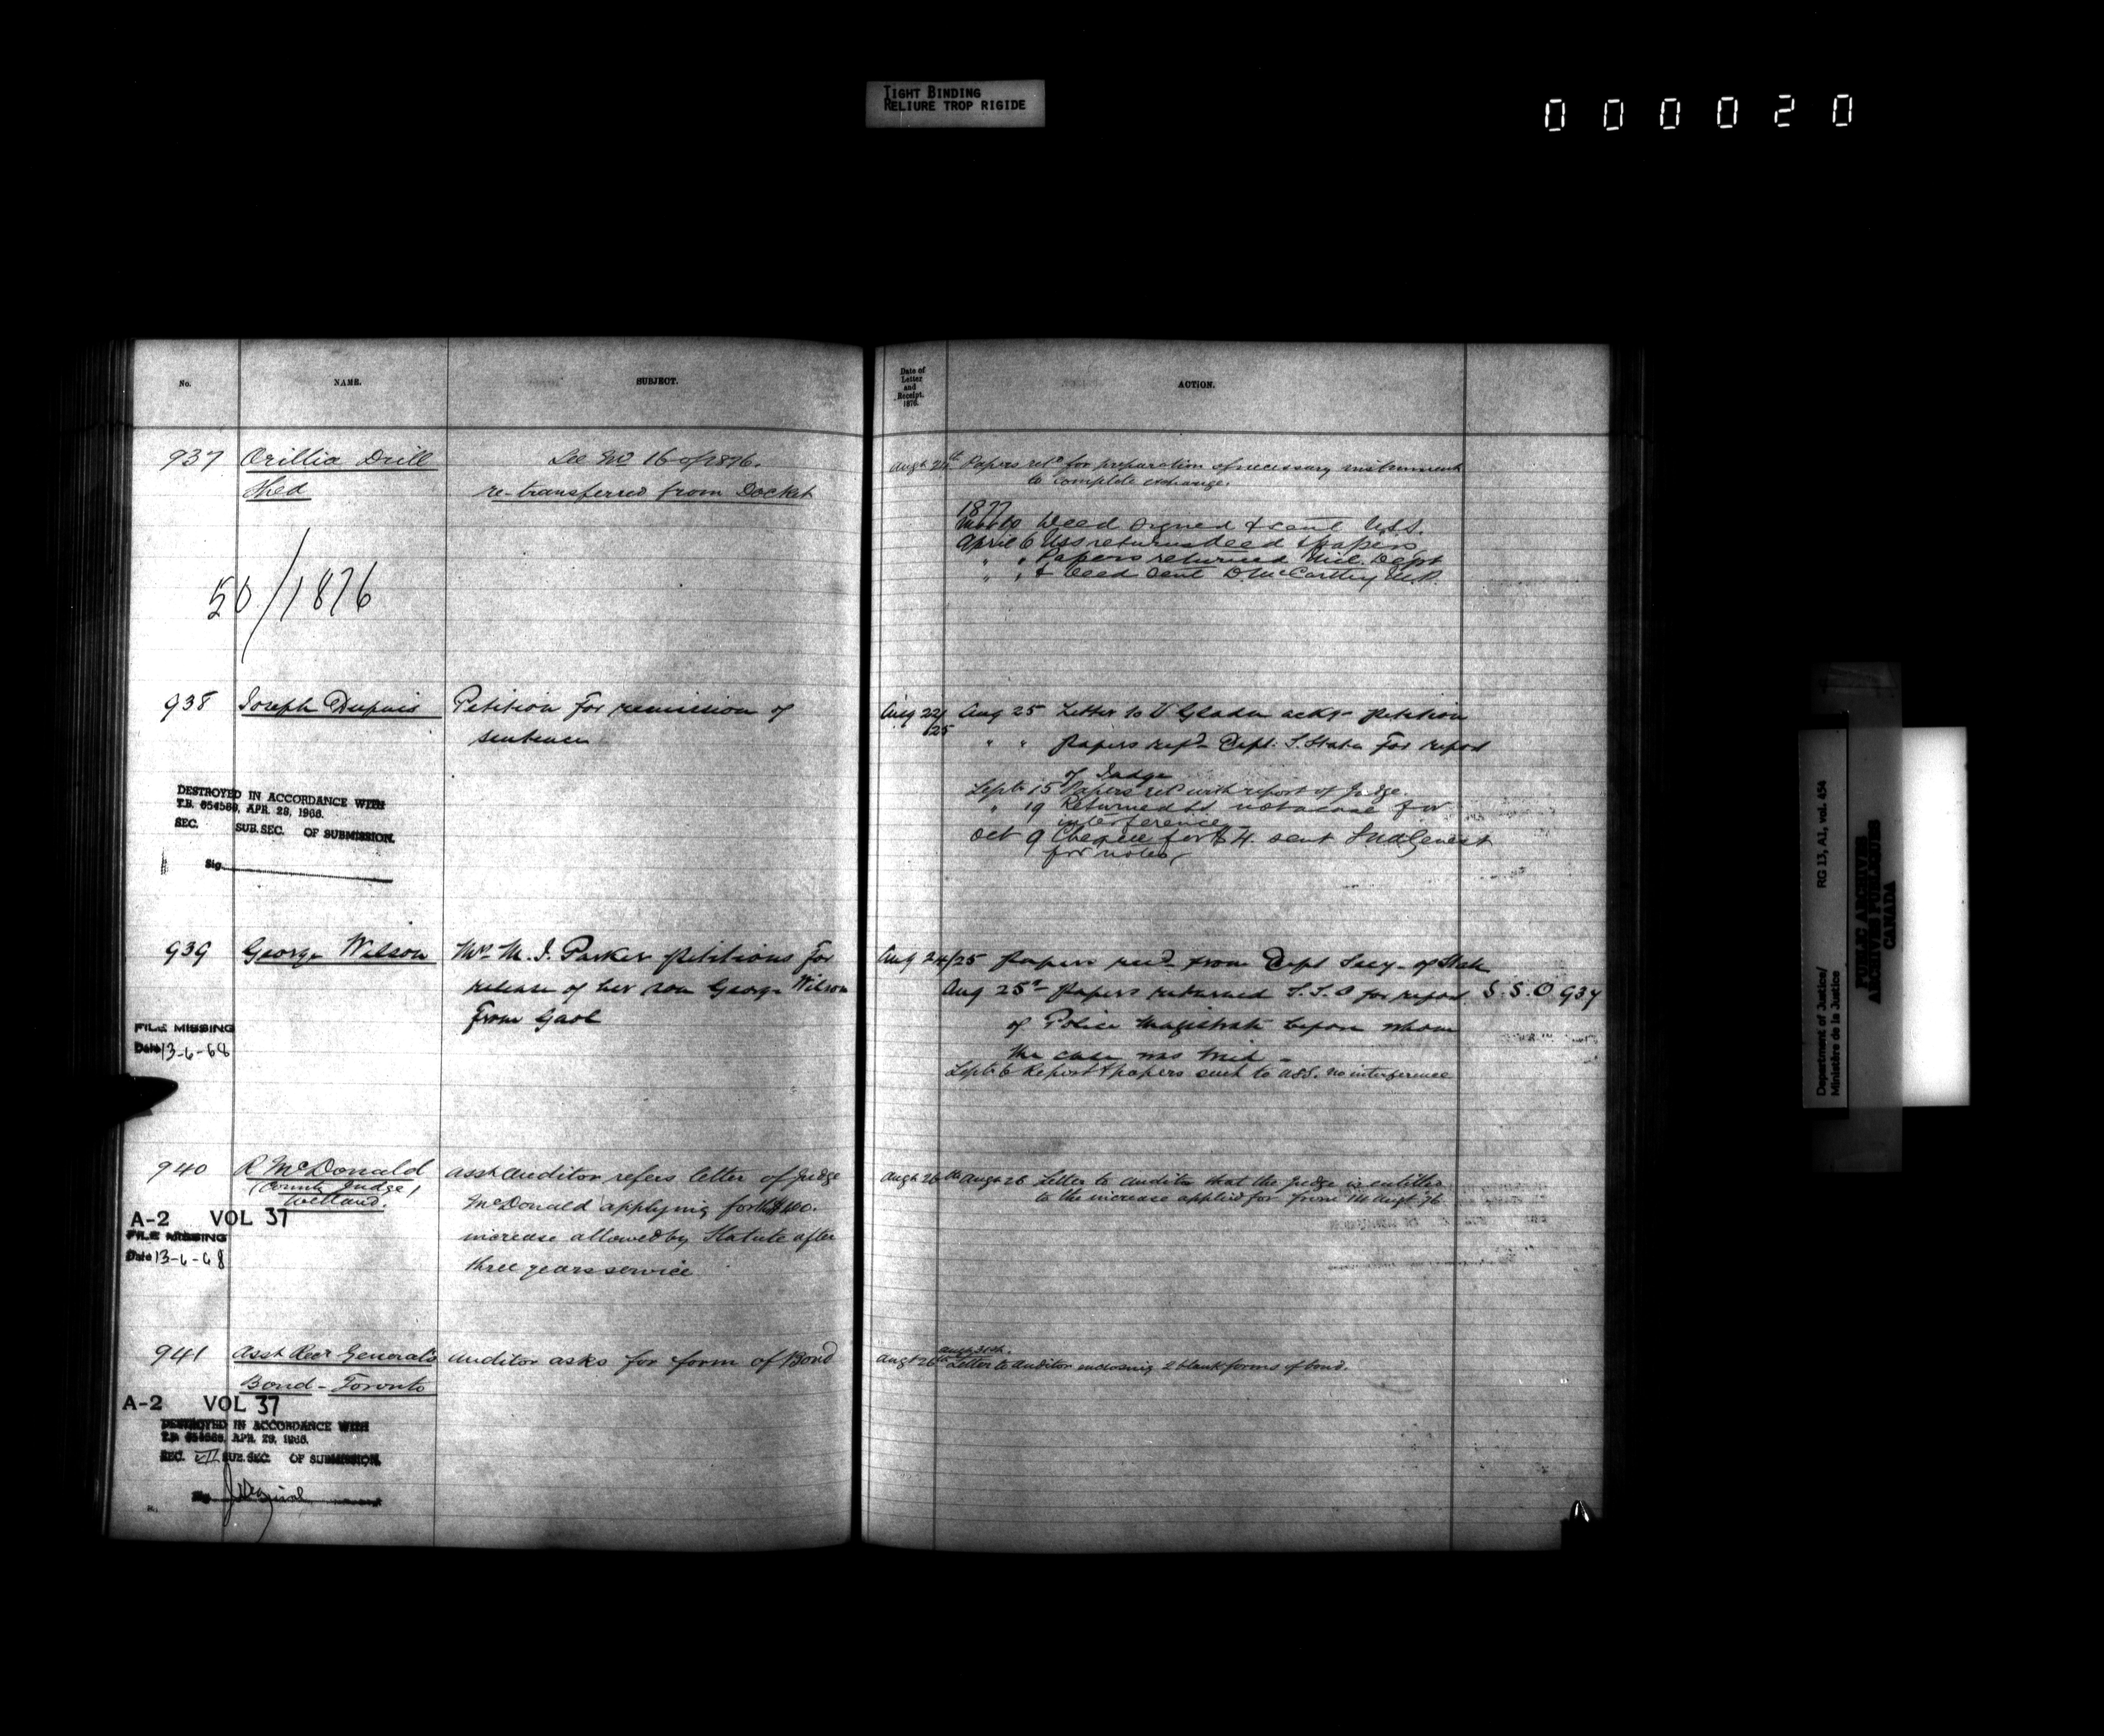 TIGHT BINDING
RELIURE TROP RIGIDE
000020
No. NAME. SUBJECT.
Date of
Letter
and
Receipt.
1876.
ACTION.
937 Orillia Drill See No 16 of 1876.
Shed re-transferred from Docket
50/1876
Augt 24th Papers retd for preparation of necessary instrument
to complete exchange.
1877
Deed signed & sent U.S.S.
April 6 USS returns deed & papers
" " Papers returned Mil. Dept
" " & deed sent D McCarthy M.P.
938 Joseph Dupuis Petition for remission of
sentence
DESTROYED IN ACCORDANCE WITH
T.B. 654569, APR. 29, 1966.
SEC. SUB.SEC. OF SUBMISSION.
Sig.
Aug 22/25 Aug 25 Letter to V Gladu ackg petition
" " Papers refd Dept. S. State for report
of Judge
Sept. 15 Papers retd with report of Judge.
" 19 Returned not a case for
interference
Oct 9 Cheque for $4. sent
for notes
939 George Wilson Mrs M. J. Parker petitions for
release of her son George Wilson
from Gaol
FILE MISSING
Date 13-6-68
Aug 24/25 Papers recd from Dept Secy. of State
Aug 25 Papers returned S.S.O for report S.S.O 937
of Police Magistrate before whom
the case was tried -
Sept. 6 Report & papers sent to USS. no interference
940 R McDonald Asst Auditor refers letter of Judge
(County Judge) McDonald applying for the $400.
Welland. increase allowed by Statute after
three years service
A-2 VOL 37
FILE MISSING
Date 13-6-68
Augt 26th Augt 26 Letter to Auditor that the Judge is entitled
to the increase applied for from 14 Augt '76
941 Asst Recr General's Auditor asks for form of Bond
Bond - Toronto
A-2 VOL 37
DESTROYED IN ACCORDANCE WITH
T.B. 654569, APR. 29, 1966.
SEC. VII SUB.SEC. OF SUBMISSION.
Sig
Augt 31st.
Augt 26th Letter to Auditor enclosing 2 blank forms of bond.
Department of Justice/ RG 13, A1, vol. 454
Ministère de la Justice
PUBLIC ARCHIVES
ARCHIVES PUBLIQUES
CANADA